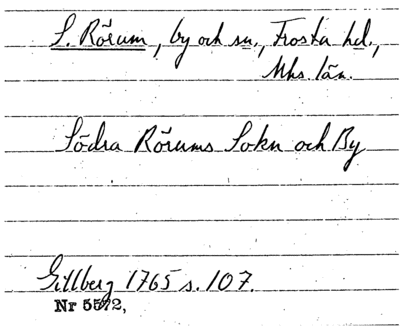 S. Rörum, by och sn., Frosta hd.,
Mhs. län.
Södra Rörums Sokn och By
Gillberg 1765 s. 107.
Nr 5572,